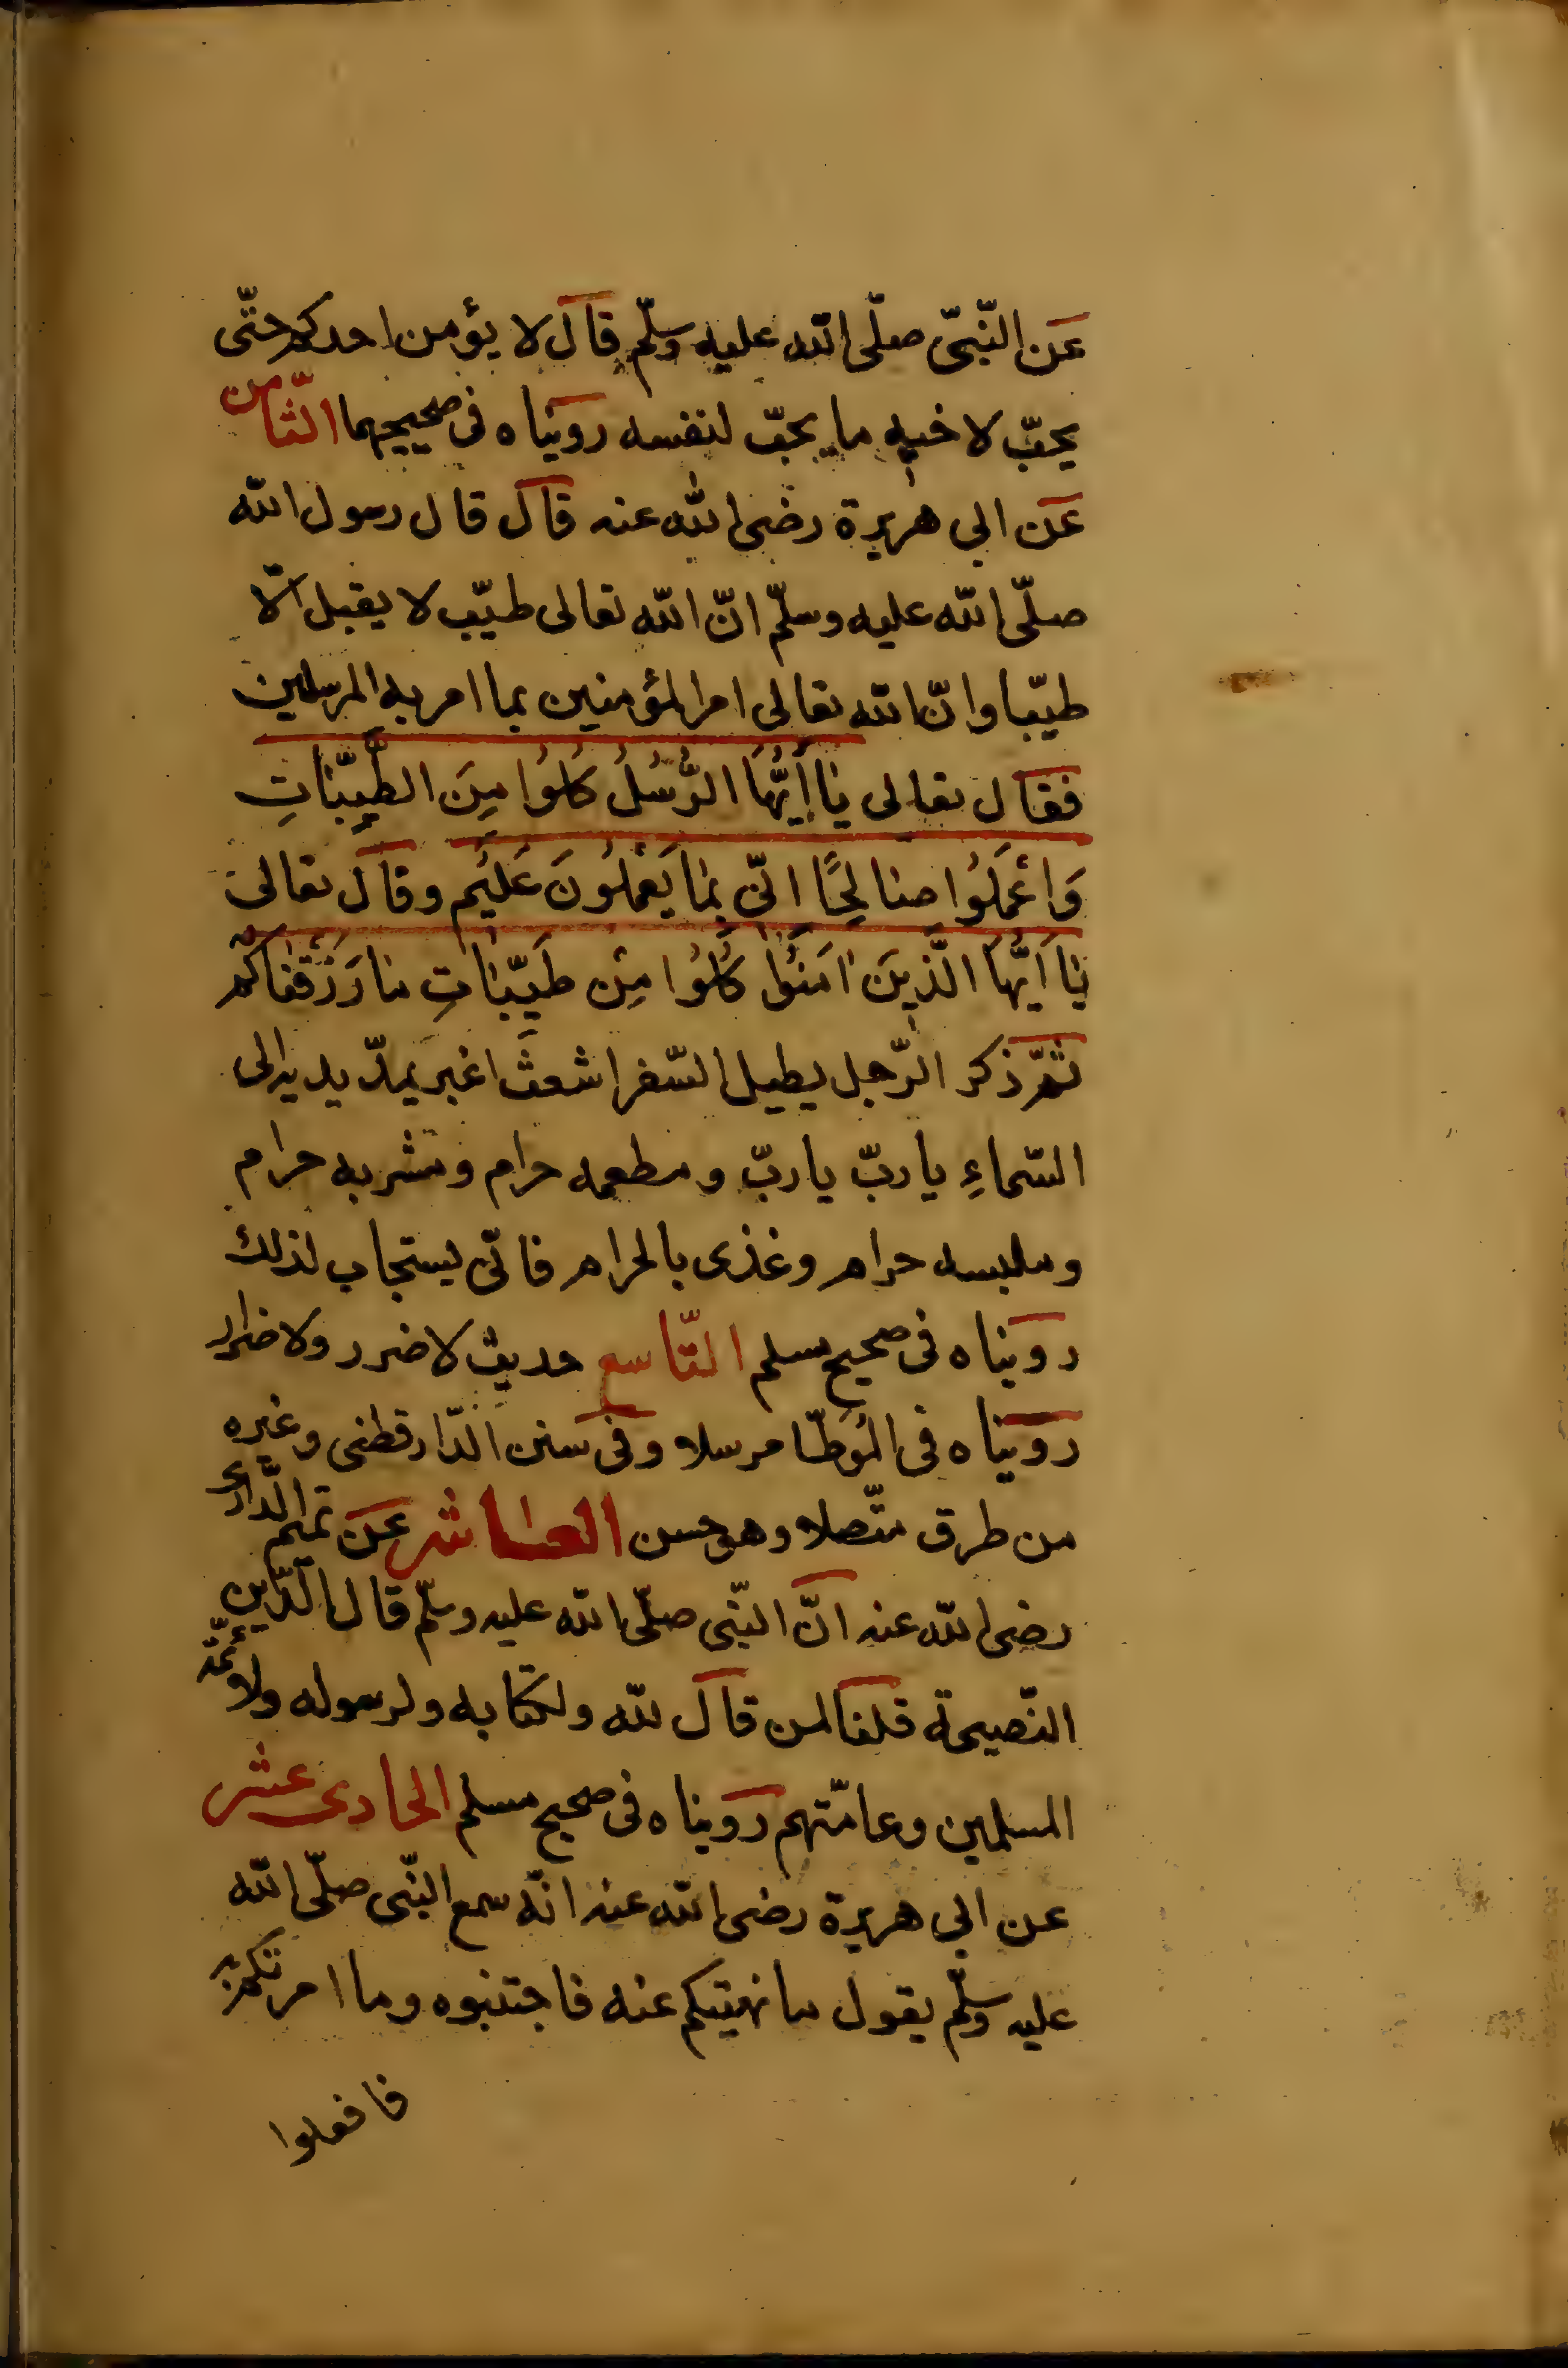 عَن النّبىّ صلّى الله عليه وسلّم قال لا يؤمن احدكم حتّى
يحبّ لاخيه ما يحبّ لنفسه رويناه فى صحيحيهما الثّامن
عَن ابى هريرة رضى الله عنه قال قال رسول الله
صلّى الله عليه وسلّم انّ الله تعالى طيّب لا يقبل الّا
طيّبا وانّ الله تعالى امر المؤمنين بما امر به المرسلين
فقال تعالى يَا أَيُّهَا الرُّسُلُ كُلُوا مِنَ الطَّيِّبَاتِ
وَاعْمَلُوا صَالِحًا انّى بِمَا يَعْمَلُونَ عَلِيم وقال تعالى
يَا اَيُّهَا الَّذِينَ امَنُوا كُلُوا مِنْ طَيِّبَاتِ مَا رَزَقْنَاكُمْ
ثمّ ذكر الرّجل يطيل السّفر اشعث اغبر يمدّ يديه الى
السّماءِ يا ربّ يا ربّ ومطعمه حرام ومشربه حرام
وملبسه حرام وغذى بالحرام فانّى يستجاب لذلك
رويناه فى صحيح مسلم التّاسع حديث لا ضرر ولا ضرار
رويناه فى المُوَطّا مرسلا وفى سنن الدّارقطنى وغيره
من طرق متّصلا وهو حسن العاشر عَن تميم الدّارى
رضى الله عنه انّ النّبى صلّى الله عليه وسلّم قال الدّين
النّصيحة قلنا لمن قال لله ولكتابه ولرسوله ولأئمّة
المسلمين وعامّتهم رويناه فى صحيح مسلم الحادى عشر
عن ابى هريرة رضى الله عنه انّه سمع النّبى صلّى الله
عليه وسلّم يقول ما نهيتكم عنه فاجتنبوه وما امرتكم به
فافعلوا